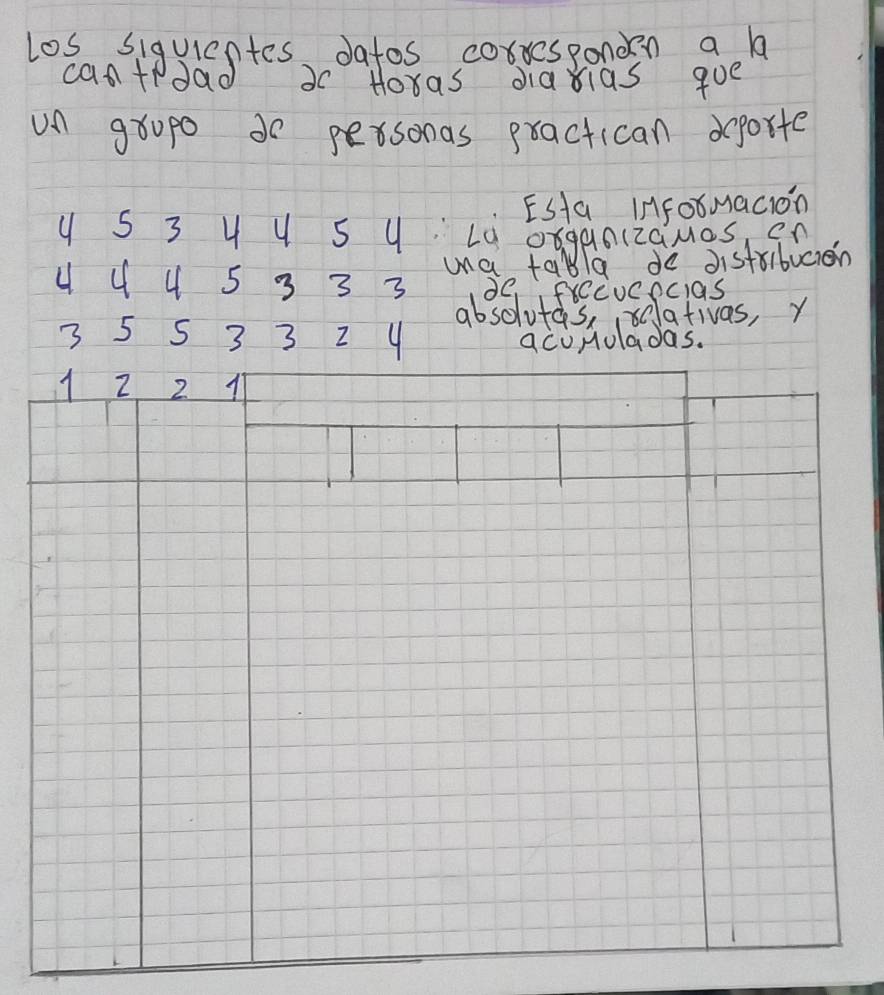 Los siguientes datos corresponden a la
cantidad de Horas diarias que
un grupo de personas practican deporte
Esta información
4 5 3 4 4 5 4 La organizamos en
una tabla de distribución
4 4 4 5 3 3 3 de frecuencias
absolutas, relativas, y
3 5 5 3 3 2 4 acumuladas.
1 2 2 1